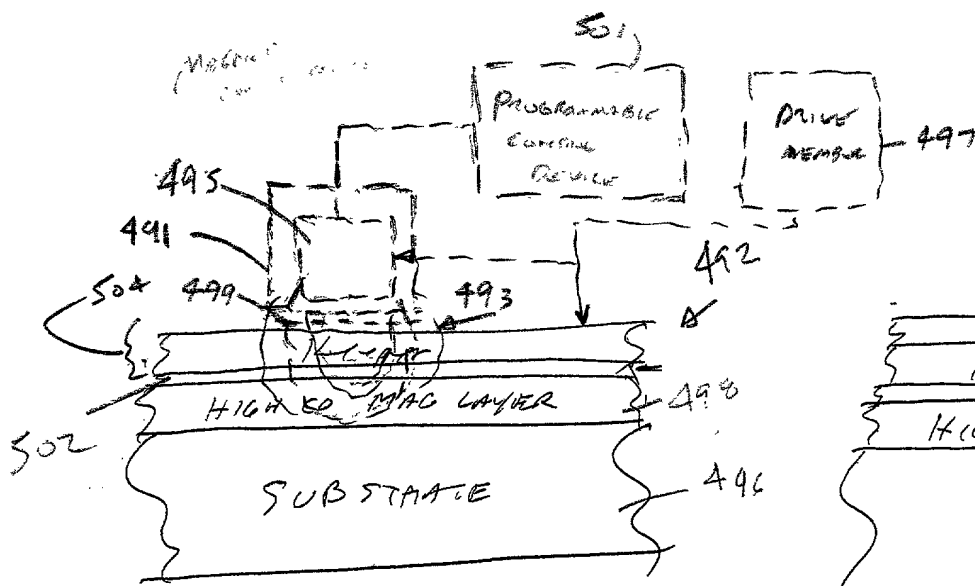 501
PROGRAMMABLE
CONTROL
DEVICE
DRIVE
MEMBER
497
495
491
492
504
499
493
HIGH MAG LAYER
498
502
SUBSTRATE
496